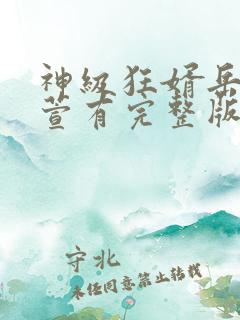 神级狂婿岳
萱有完整版
守北
未经同意禁止转载